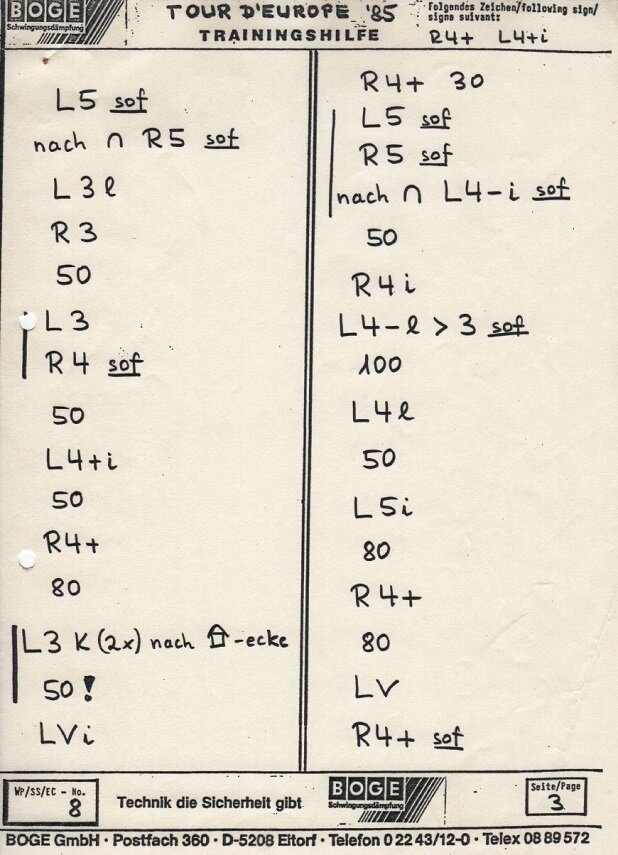 BOGE
Schwingungsdämpfung
TOUR D'EUROPE '85
TRAININGSHILFE
Folgendes Zeichen/following sign/
signe suivant:
R4+ L4+i
L5 sof
nach ∩ R5 sof
L3l
R3
50
L3
R4 sof
50
L4+i
50
R4+
80
L3 K (2x) nach ⇧-ecke
50!
LVi
R4+ 30
L5 sof
R5 sof
nach ∩ L4-i sof
50
R4i
L4-l > 3 sof
100
L4l
50
L5i
80
R4+
80
LV
R4+ sof
WP/SS/EC - No.
8
Technik die Sicherheit gibt
BOGE
Schwingungsdämpfung
Seite/Page
3
BOGE GmbH · Postfach 360 · D-5208 Eitorf · Telefon 0 22 43/12-0 · Telex 08 89 572